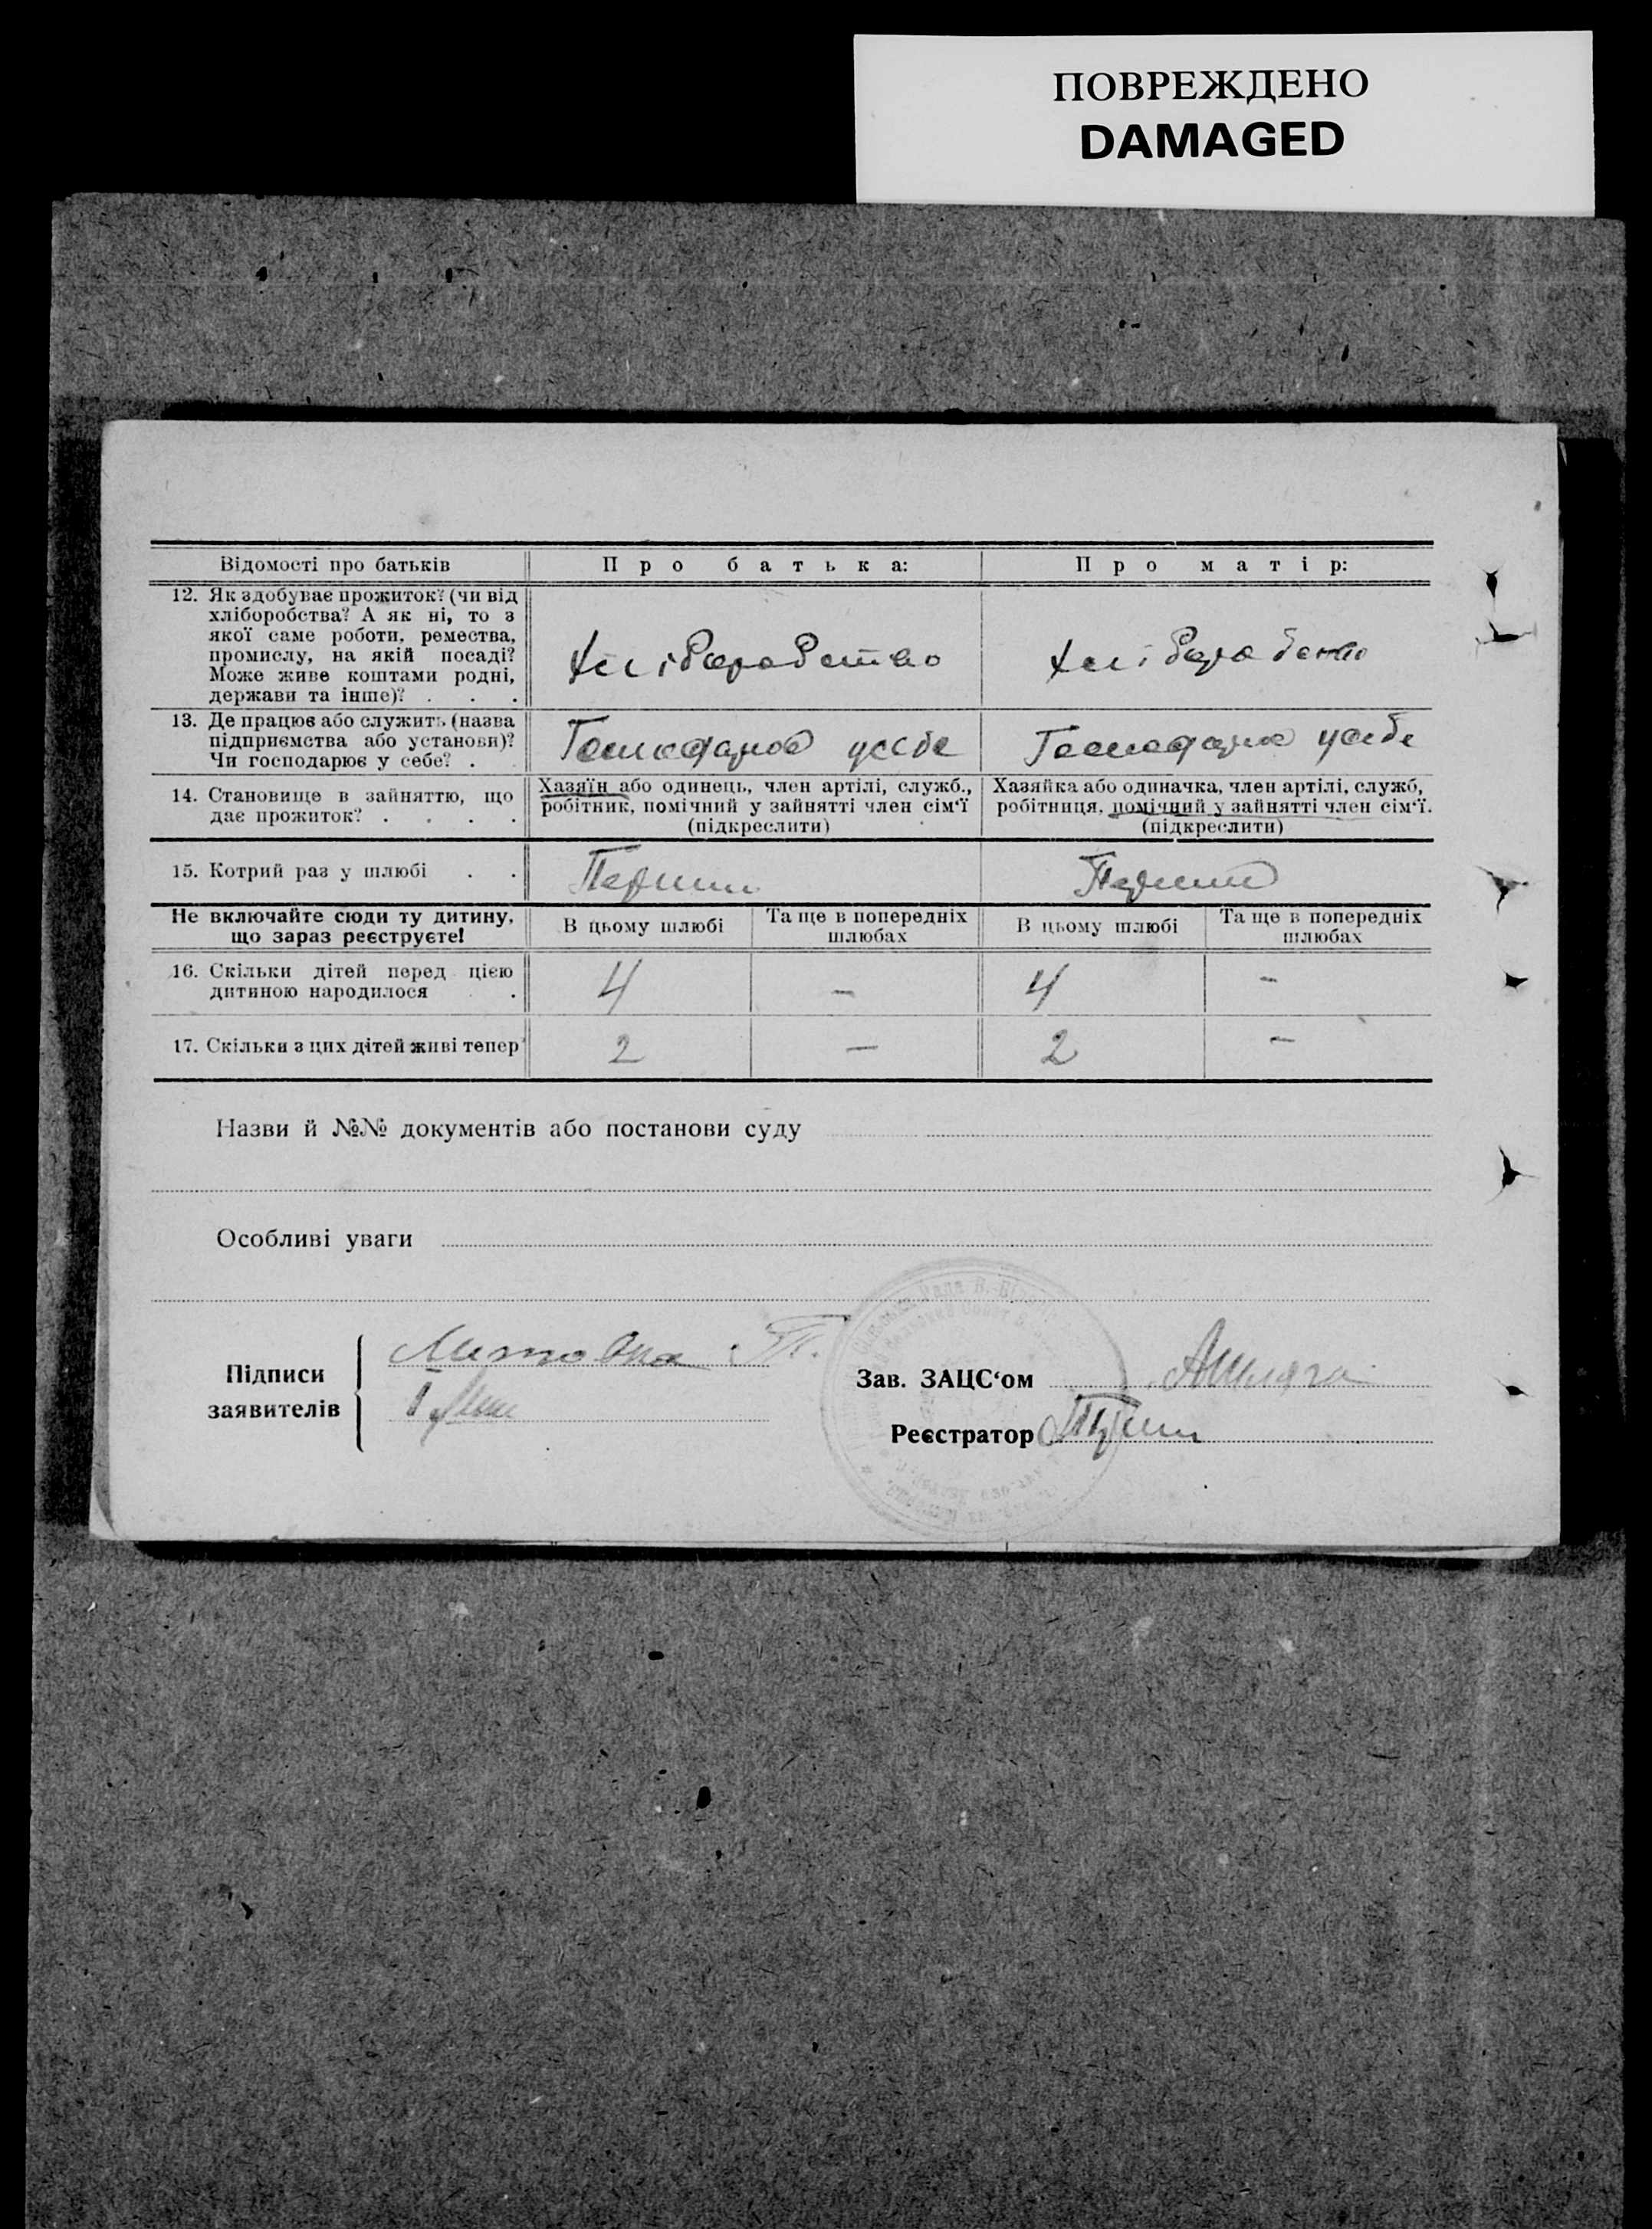 ПОВРЕЖДЕНО
DAMAGED
Відомості про батьків
Про батька:
Про матір:
12. Як здобуває прожиток? (чи від
хліборобства? А як ні, то з
якої саме роботи, ремества,
промислу, на якій посаді?
Може живе коштами родні,
держави та інше)? . . .
Хліборобство
Хліборобство
13. Де працює або служить (назва
підприємства або установи)?
Чи господарює у себе? .
Господарює у себе
Господарює у себе
14. Становище в зайняттю, що
дає прожиток? . . . .
Хазяїн або одинець, член артілі, служб.,
робітник, помічний у зайнятті член сім'ї
(підкреслити)
Хазяйка або одиначка, член артілі, служб,
робітниця, помічний у зайнятті член сім'ї.
(підкреслити)
15. Котрий раз у шлюбі . .
Перший
Перший
Не включайте сюди ту дитину,
що зараз реєструєте!
В цьому шлюбі
Та ще в попередніх
шлюбах
В цьому шлюбі
Та ще в попередніх
шлюбах
16. Скільки дітей перед цією
дитиною народилося .
4 — 4 —
17. Скільки з цих дітей живі тепер
2 — 2 —
Назви й №№ документів або постанови суду
Особливі уваги
Підписи
заявителів
Зав. ЗАЦС'ом
Реєстратор